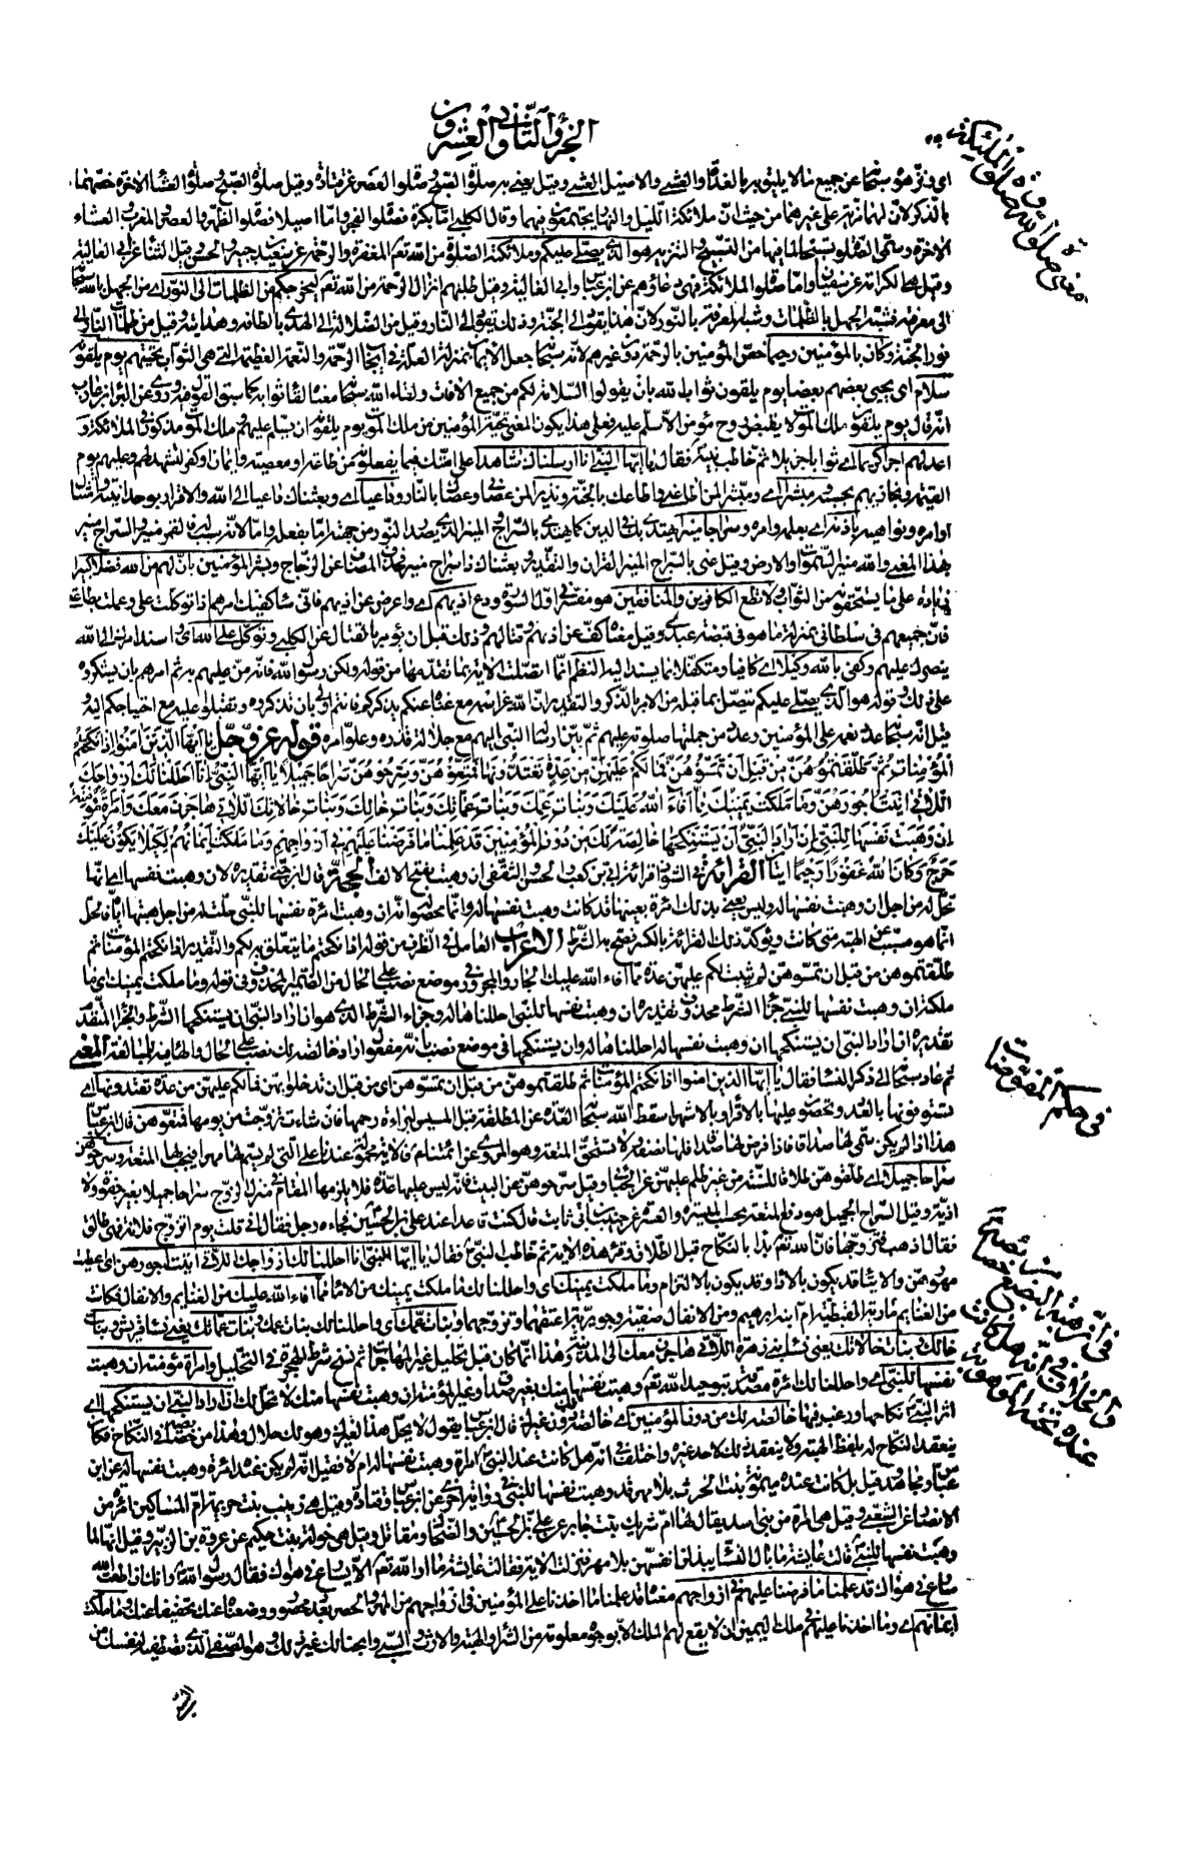 الجزؤ الثانی والعشرون
معنى صلوة الله وصلوة الملئكة
اى ونزّهوه سبحانه عن جميع ما لا يليق به بالغداة والعشى والاصيل العشى وقيل يعنى به صلوة الصبح وصلوة العصر عن قتادة وقيل صلوة الصبح وصلوة العشاء الاخرة خصّهما
بالذكر لانّ لهما مزية على غيرهما من حيث انّ ملائكة الليل والنهار يجتمعون فيهما وقال الكلبى امّا بكرة فصلوة الفجر وامّا اصيلا فصلوة الظهر والعصر والمغرب والعشاء
الاخرة وسمى الصلوة تسبيحا لما فيها من التسبيح والتنزيه هو الّذى يصلّى عليكم وملائكته الصلوة من الله تعالى المغفرة والرحمة عن سعيد بن جبير والحسن وقيل الثناء عن ابى العالية
وقيل هى الكرامة عن سفيان وامّا صلوة الملائكة فهى دعاؤهم عن ابن عباس وابى العالية وقيل طلبهم انزال الرحمة من الله تعالى ليخرجكم من الظلمات الى النور اى من الجهل بالله سبحانه
الى معرفته فشبّه الجهل بالظلمات وشبّه المعرفة بالنور لانّ هذا يقود الى الجنة وذلك يقود الى النار وقيل من الضلالة الى الهدى بالطافه وهدايته وقيل من ظلمات النار الى
نور الجنة وكان بالمؤمنين رحيما خصّ المؤمنين بالرحمة دون غيرهم لانّه سبحانه جعل الايمان بمنزلة العلّة فى ايجاب الرحمة والنعمة العظيمة التى هى الثواب تحيّتهم يوم يلقونه
سلام اى يحيى بعضهم بعضا يوم يلقون ثواب الله بان يقولوا السلامة لكم من جميع الافات ولقاء الله سبحانه معناه لقاء ثوابه كما سبق القول فيه وروى عن البراء بن عازب
انّه قال يوم يلقون ملك الموت لا يقبض روح مؤمن الّا سلّم عليه فعلى هذا يكون المعنى تحيّة المؤمنين من ملك الموت يوم يلقونه ان يسلّم عليهم وملك الموت مذكور فى الملائكة و
اعدّ لهم اجرا كريما اى ثوابا جزيلا ثمّ خاطب نبيّه فقال يا ايّها النبى انّا ارسلناك شاهدا على امّتك فيما يفعلونه من طاعة او معصية وايمان او كفر لتشهد لهم وعليهم يوم
القيمة ونجازيهم بحسبه ومبشّرا اى ومبشّرا لمن اطاعنى واطاعك بالجنة ونذيرا لمن عصانى وعصاك بالنار وداعيا اى وبعثناك داعيا الى الله والاقرار بوحدانيته وامتثال
اوامره ونواهيه باذنه اى بعلمه وامره وسراجا منيرا يهتدى بك فى الدين كما يهتدى بالسراج والمنير الّذى يصدر النور من جهته امّا بفعله وامّا لانّه سبب له فالقمر منير والسراج منير
بهذا المعنى والله منير السموات والارض وقيل عنى بالسراج المنير القران والتقدير بعثناك ذا سراج منير فحذف المضاف عن الزجاج وبشّر المؤمنين بانّ لهم من الله فضلا كبيرا
زيادة على ما يستحقّونه من الثواب ولا تطع الكافرين والمنافقين هو مفسّر فى اوّل السورة ودع اذيهم اى واعرض عن اذيهم فانّى ساكفيك امرهم اذا توكّلت علىّ وعملت بطاعتى
فانّ جميعهم فى سلطانى بمنزلة ما هو فى قبضة عبدى وقيل معناه كفّ عن اذيهم وقتالهم وذلك قبل ان يؤمر بالقتال عن الكلبى وتوكّل على الله اى واسند امرك الى الله
ينصرك عليهم وكفى بالله وكيلا اى كافيا ومتكفّلا بما يسند اليه النظم انّما اتصلت الاية بما تقدّمها من قوله ولكن رسول الله فانّه منّ عليهم به ثم امرهم بان يشكروه
على ذلك وقوله هو الّذى يصلّى عليكم يتصل بما قبله من الامر بالذكر والتقدير انّ الله عزّ اسمه مع غناه عنكم يذكركم فانتم اولى بان تذكروه وتقبلوا عليه مع احتياجكم اليه
قيل انّه سبحانه عدّد نعمه على المؤمنين وعدّ من جملتها صلوته عليهم ثم بيّن ارسال النبى اليهم مع جلالة قدره وعلوّ امره قوله عزّ وجلّ يا ايّها الّذين امنوا اذا نكحتم
المؤمنات ثمّ طلّقتموهنّ من قبل ان تمسّوهنّ فما لكم عليهنّ من عدّة تعتدّونها فمتّعوهنّ وسرّحوهنّ سراحا جميلا يا ايّها النبى انّا احللنا لك ازواجك
اللاتى اتيت اجورهنّ وما ملكت يمينك ممّا افاء الله عليك وبنات عمّك وبنات عمّاتك وبنات خالك وبنات خالاتك اللاتى هاجرن معك وامراة مؤمنة
ان وهبت نفسها للنبى ان اراد النبى ان يستنكحها خالصة لك من دون المؤمنين قد علمنا ما فرضنا عليهم فى ازواجهم وما ملكت ايمانهم لكيلا يكون عليك
حرج وكان الله غفورا رحيما ايتان القراءة فى الشواذ قراءة ابى بن كعب والحسن والثقفى ان وهبت بفتح الالف الحجة قال ابن جنّى تقديره لان وهبت نفسها اى انّها
تحلّ له من اجل ان وهبت نفسها له وليس يعنى بذلك امراة بعينها قد كانت وهبت نفسها له وانّما محصوله انّه ان وهبت امراة نفسها للنبى حلّت له من اجل هبتها ايّاه فالحلّ
انّما هو مسبّب عن الهبة متى كانت ويؤكّد ذلك القراءة بالكسر فصحّ به الشرط الاعراب العامل فى الظرف من قوله اذا نكحتم ما يتعلّق به لكم والتقدير اذا نكحتم المؤمنات ثم
طلّقتموهن من قبل ان تمسّوهنّ لم يثبت لكم عليهنّ عدّة ممّا افاء الله عليك الجار والمجرور فى موضع نصب على الحال من الضمير المحذوف فى قوله وما ملكت يمينك اى ما
ملكته ان وهبت نفسها للنبى جزاء الشرط محذوف وتقديره ان وهبت نفسها للنبى احللناها له وجزاء الشرط الّذى هو ان اراد النبى ان يستنكحها الشرط والجزاء المتقدّم
تقديره ان اراد النبى ان يستنكحها ان وهبت نفسها له احللناها له وان يستنكحها فى موضع نصب بانّه مفعول اراد خالصة لك نصب على الحال والهاء فيه للمبالغة المعنى
ثم عاد سبحانه الى ذكر النساء فقال يا ايّها الذين امنوا اذا نكحتم المؤمنات ثم طلّقتموهنّ من قبل ان تمسّوهن اى من قبل ان تدخلوا بهنّ فما لكم عليهنّ من عدّة تعتدّونها اى
فى حكم المفوّضات
تستوفونها بالعدد وتحصون عليها بالاقراء وبالاشهر اسقط الله سبحانه العدّة عن المطلّقة قبل المسيس لبراءة رحمها فان شاءت تزوّجت من يومها فمتّعوهن قال ابن عباس
هذا اذا لم يكن سمّى لها صداقا فاذا فرض لها صداقا فلها نصفه ولا تستحقّ المتعة وهو المروى عن ائمتنا فالاية محمولة عندنا على التى لم يسمّ لها مهرا فيجب لها المتعة وسرّحوهن
سراحا جميلا اى طلّقوهنّ طلاقا للسنّة من غير ظلم عليهنّ عن الجبائى وقيل سرّحوهنّ عن البيت فانّه ليس عليها عدّة فلا يلزمها المقام فى منزل الزوج سراحا جميلا بغير جفوة ولا
اذيّة وقيل السراح الجميل هو دفع المتعة بحسب الميسرة والعسرة عن حبيب بن ابى ثابت قال كنت قاعدا عند على بن الحسين فجاءه رجل فقال انّى قلت يوم اتزوّج فلانة فهى طالق
فقال اذهب فتزوّجها فانّ الله تعالى بدأ بالنكاح قبل الطلاق وقرأ هذه الاية ثم خاطب النبى فقال يا ايّها النبى انّا احللنا لك ازواجك اللاتى اتيت اجورهن اى اعطيت
مهورهنّ والايتاء قد يكون بالاداء وقد يكون بالالتزام وما ملكت يمينك اى واحللنا لك ما ملكت يمينك من الاماء ممّا افاء الله عليك من الغنايم والانفال فكانت
من الغنايم مارية القبطيّة امّ ابنه ابراهيم ومن الانفال صفيّة وجويرية اعتقهما وتزوّجهما وبنات عمّك اى واحللنا لك بنات عمّك وبنات عمّاتك يعنى نساء قريش وبنات
خالك وبنات خالاتك يعنى نساء بنى زهرة اللاتى هاجرن معك الى المدينة وهذا انّما كان قبل تحليل غير المهاجرات ثم نسخ شرط الهجرة فى التحليل وامراة مؤمنة ان وهبت
نفسها للنبى اى واحللنا لك امراة مصدّقة بتوحيد الله تعالى وهبت نفسها منك بغير صداق وغير المؤمنة ان وهبت نفسها منك لا تحلّ لك ان اراد النبى ان يستنكحها اى
اثر النبى نكاحها ورغب فيها خالصة لك من دون المؤمنين اى خاصّة لك دون غيرك قال ابن عباس يقول لا يحلّ هذا لغيرك وهو لك حلال وهذا من خصايصه فى النكاح فكان
ينعقد النكاح له بلفظ الهبة ولا ينعقد ذلك لاحد غيره واختلف فى انّه هل كانت عند النبى امراة وهبت نفسها له ام لا فقيل انّه لم يكن عنده امراة وهبت نفسها له عن ابن
عباس ومجاهد وقيل بل كانت عنده ميمونة بنت الحرث بلا مهر قد وهبت نفسها للنبى فى رواية اخرى عن ابن عباس وقتادة وقيل هى زينب بنت خزيمة امّ المساكين امراة من
الانصار عن الشعبى وقيل هى امراة من بنى اسد يقال لها امّ شريك بنت جابر عن على بن الحسين والضحاك ومقاتل وقيل هى خولة بنت حكيم عن عروة بن الزبير وقيل انّها لما
وهبت نفسها للنبى قالت عايشة ما بال النساء يبذلن انفسهنّ بلا مهر فنزلت الاية فقالت عايشة ما ارى الله تعالى الّا يسارع فى هواك فقال رسول الله وانّك ان اطعت الله
سارع فى هواك قد علمنا ما فرضنا عليهم فى ازواجهم معناه قد علمنا ما اخذنا على المؤمنين فى ازواجهم من المهر والحصر بعدد محصور ووضعناه عنك تخفيفا عنك وما ملكت
ايمانهم اى وما اخذنا عليهم فى ملك اليمين ان لا يقع لهم الملك الّا بوجوه معلومة من الشراء والهبة والارث والسبى وابحنا لك غير ذلك وهو الصفى الّذى تصطفيه لنفسك من